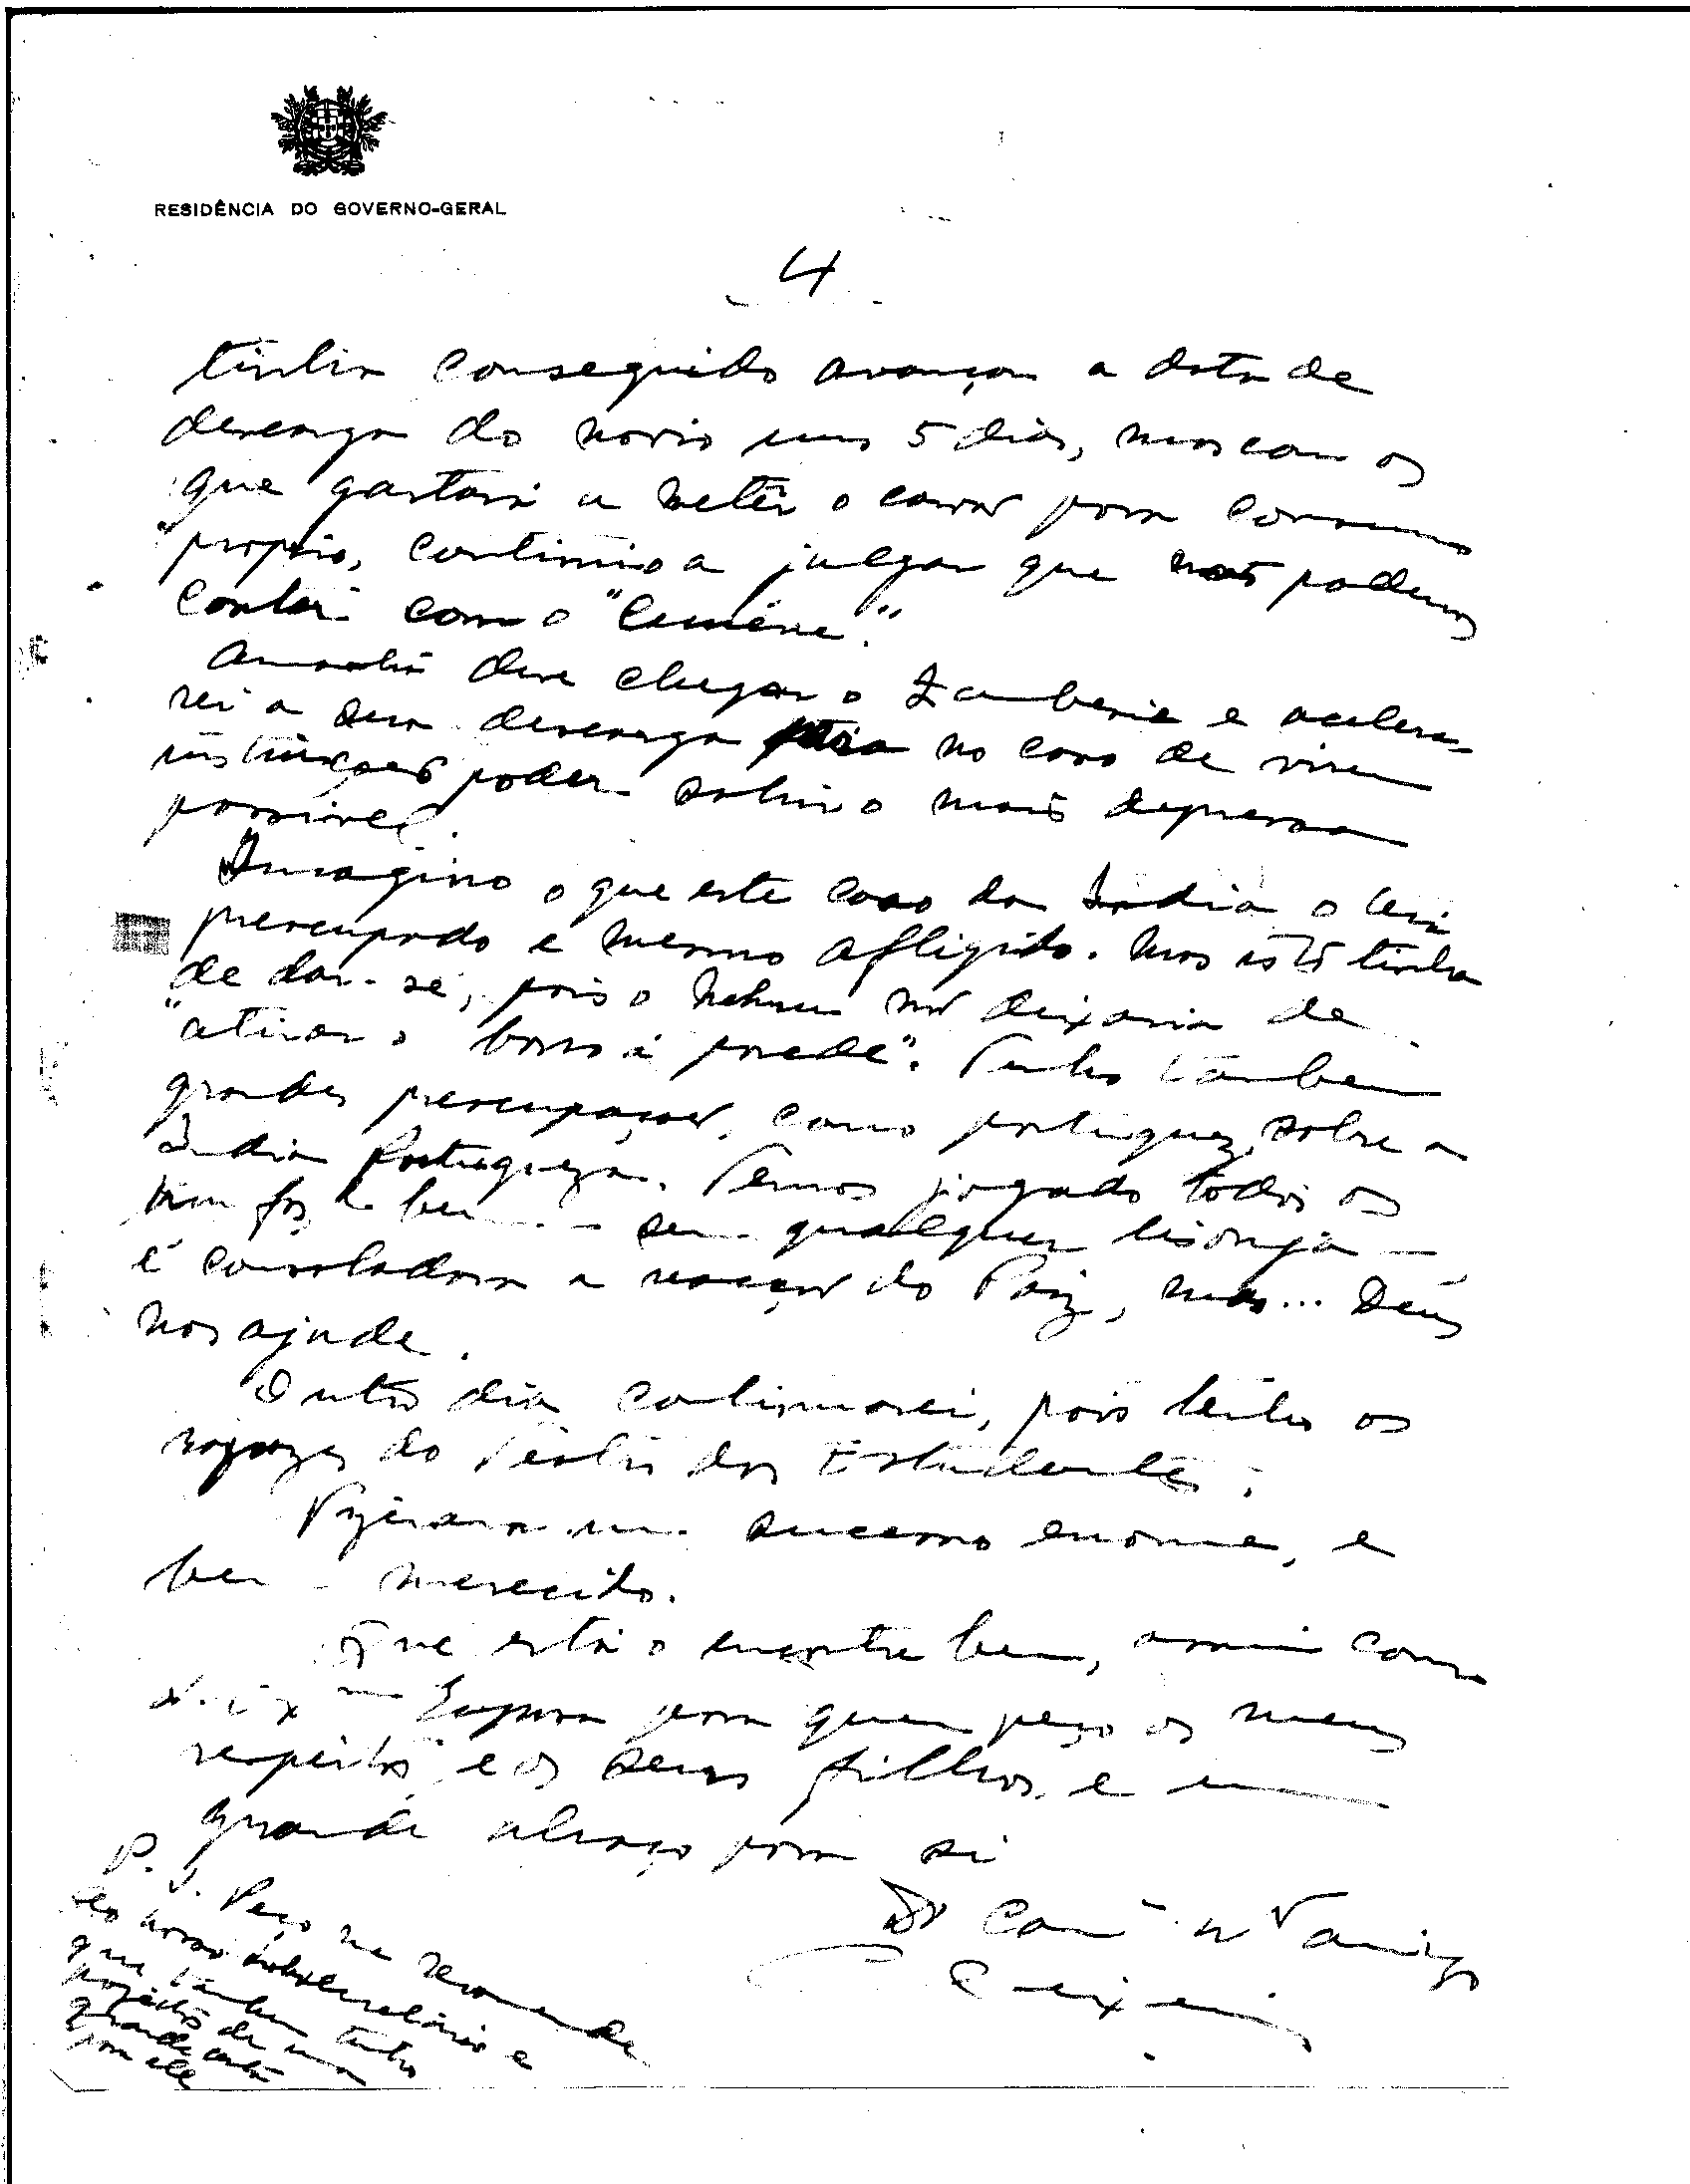 RESIDÊNCIA DO GOVERNO-GERAL
4
tinha conseguido avançar a data de
descarga do navio uns 5 dias, mas com os
que gastará a meter o carvão para consumo
proprio, continuo a julgar que não podemos
contar com o "Limiere".
Amanhã deve chegar o Zambezia e acelera-
rei a sua descarga para no caso de virem
instruções poder sahir o mais depressa
possivel.
Imagino o que este caso da India o tem
preocupado e mesmo afligido. Mas isto tinha
de dar-se, pois o Nehru não deixaria de
"atirar o barro á parede". Tenho tambem
grandes preocupações, como portuguez, sobre a
India Portugueza. Temos jogado todos os
trunfos e bem — sem qualquer lisonja —
é consoladora a reacção do Paiz, mas... Deus
nos ajude.
Outro dia continuarei, pois tenho os
rapazes do Teatro dos Estudantes.
Fizeram um sucesso enorme, e
bem merecido.
Que esta o encontre bem, assim como
Sua Exma Esposa para quem peço os meus
respeitos, e os seus filhos, e um
grande abraço para si
Do Cam. e Mto amigo
Teixeira
P.S. Peço me recomende
ao nosso Subsecretário e
que tambem tenho
projecto de uma
grande carta
para ele